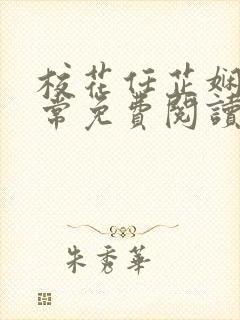 校花任芷娴
常免費閱讀
朱秀華